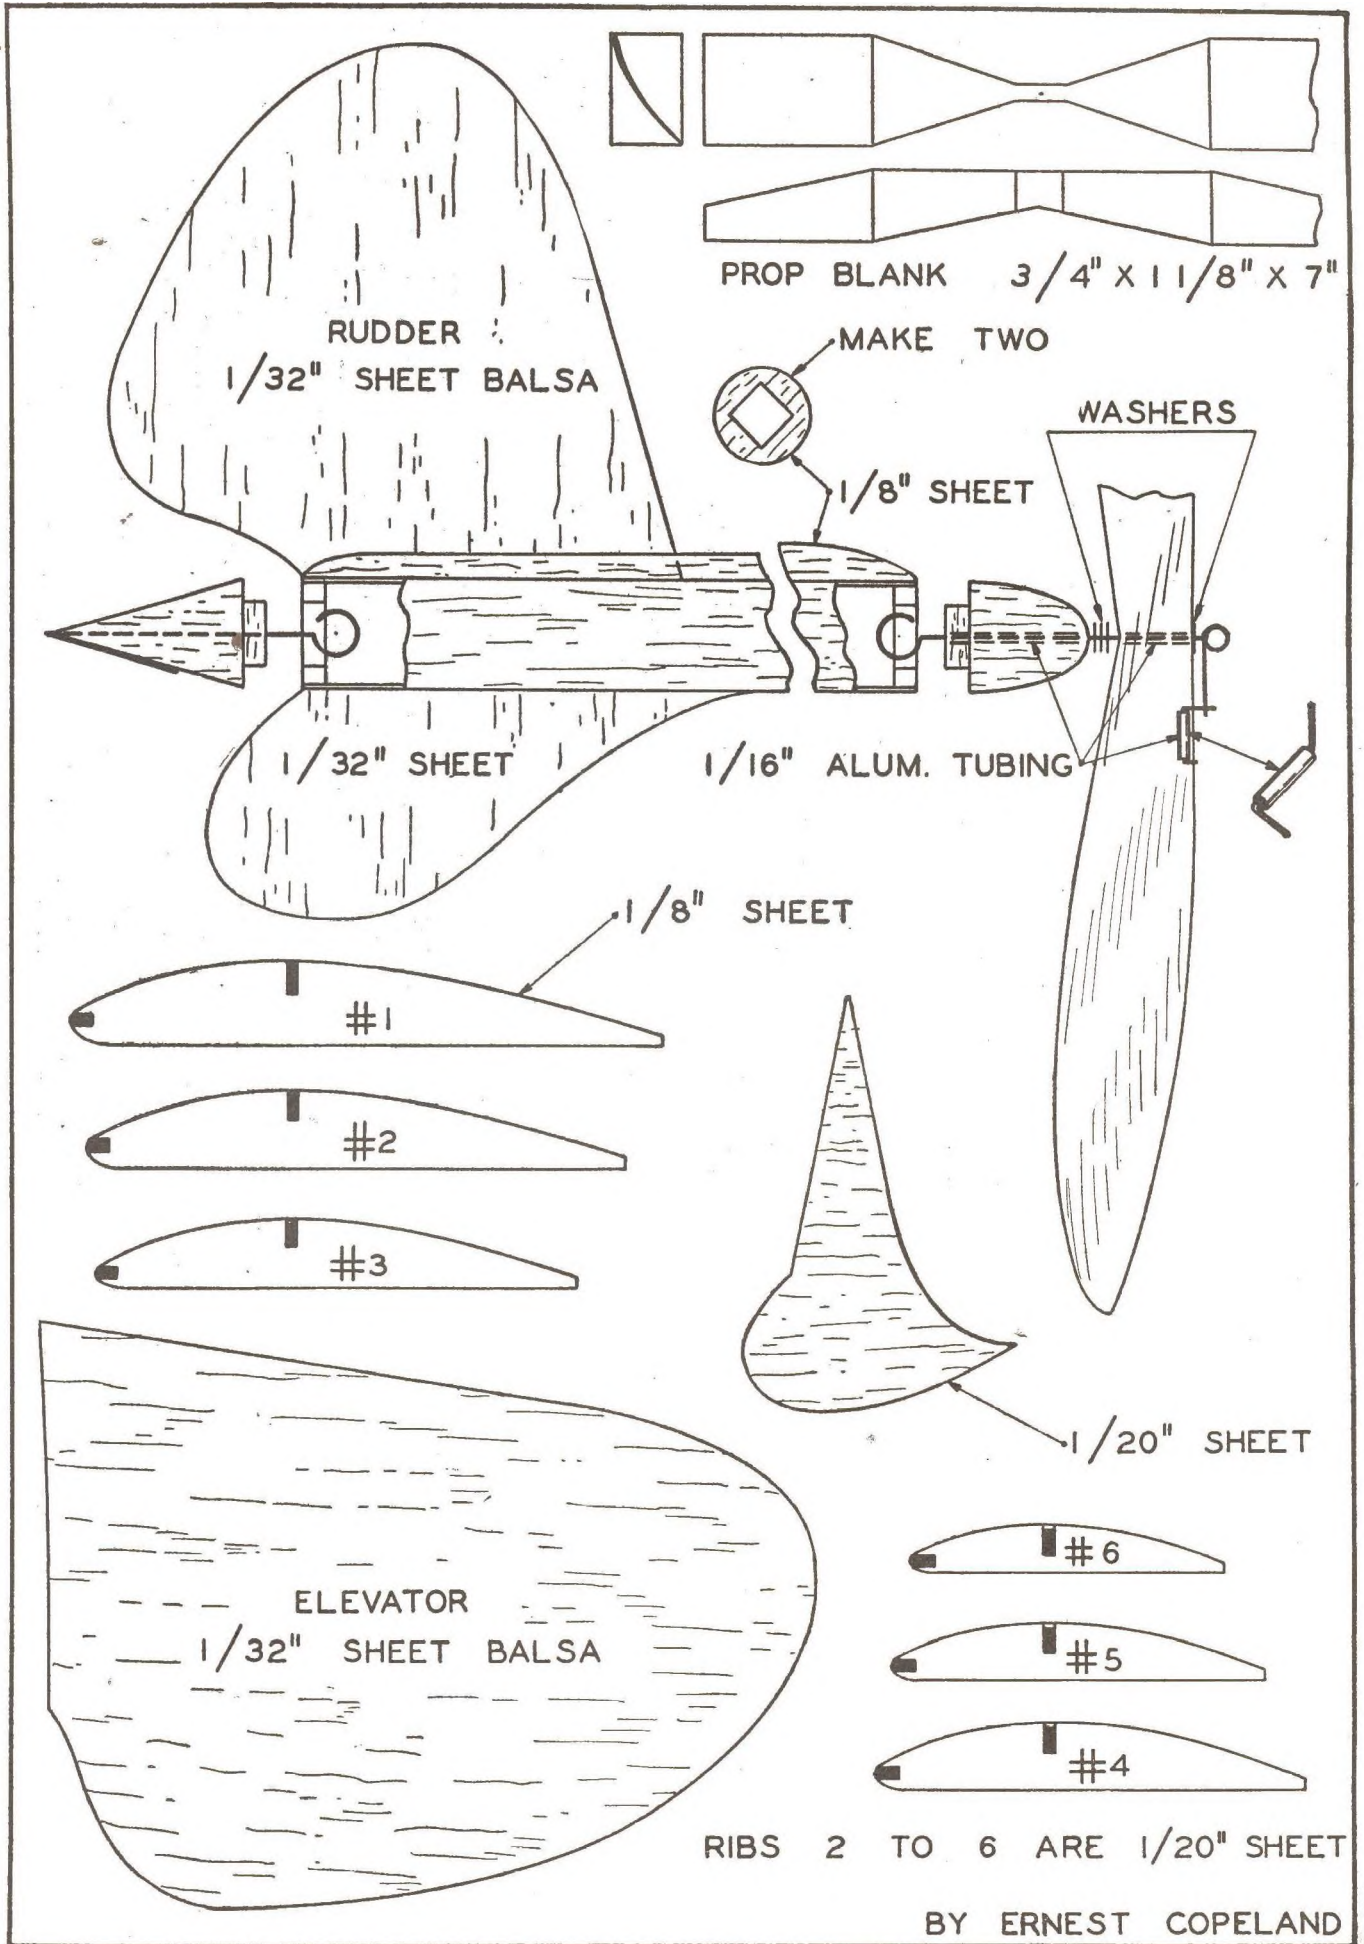 PROP BLANK 3/4" X 1 1/8" X 7"
RUDDER
1/32" SHEET BALSA
MAKE TWO
WASHERS
1/8" SHEET
1/32" SHEET
1/16" ALUM. TUBING
1/8" SHEET
#1
#2
#3
1/20" SHEET
ELEVATOR
1/32" SHEET BALSA
#6
#5
#4
RIBS 2 TO 6 ARE 1/20" SHEET
BY ERNEST COPELAND